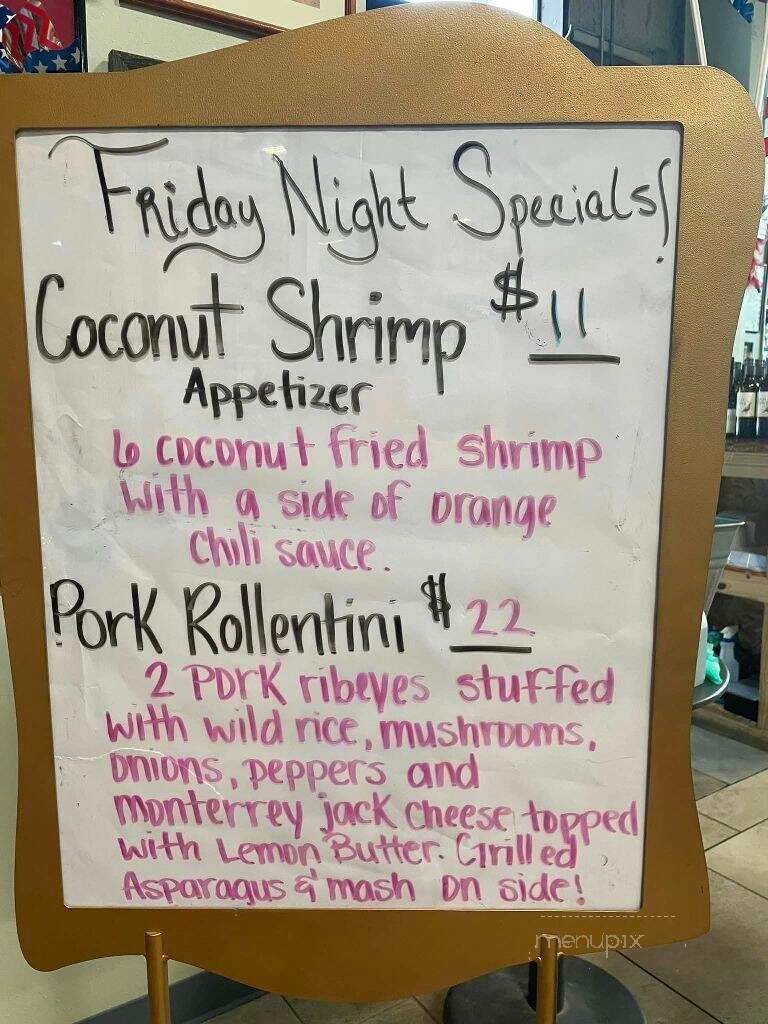 Friday Night Specials!
Coconut Shrimp $11
Appetizer
6 coconut fried shrimp
with a side of orange
chili sauce.
Pork Rollentini $22
2 Pork ribeyes stuffed
with wild rice, mushrooms,
onions, peppers and
monterrey jack cheese topped
with Lemon Butter. Grilled
Asparagus & mash on side!
menupix